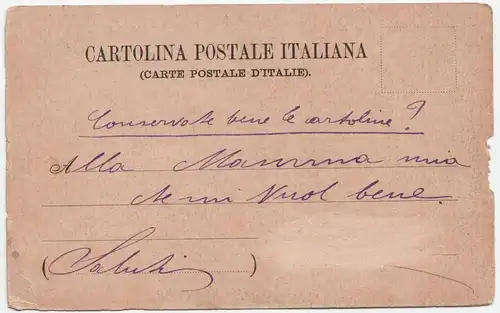 CARTOLINA POSTALE ITALIANA
(CARTE POSTALE D'ITALIE).
Conservate bene le cartoline?
Alla Mamma mia
che mi Vuol bene.
(Saluti)